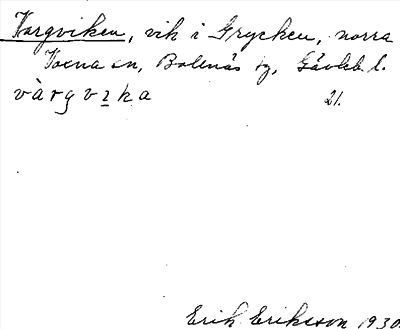 Vargviken, vik i Grycken, norra
Voxna sn, Bollnäs tg, Gävleb. l.
vàrgvika 21.
Erik Eriksson 1930